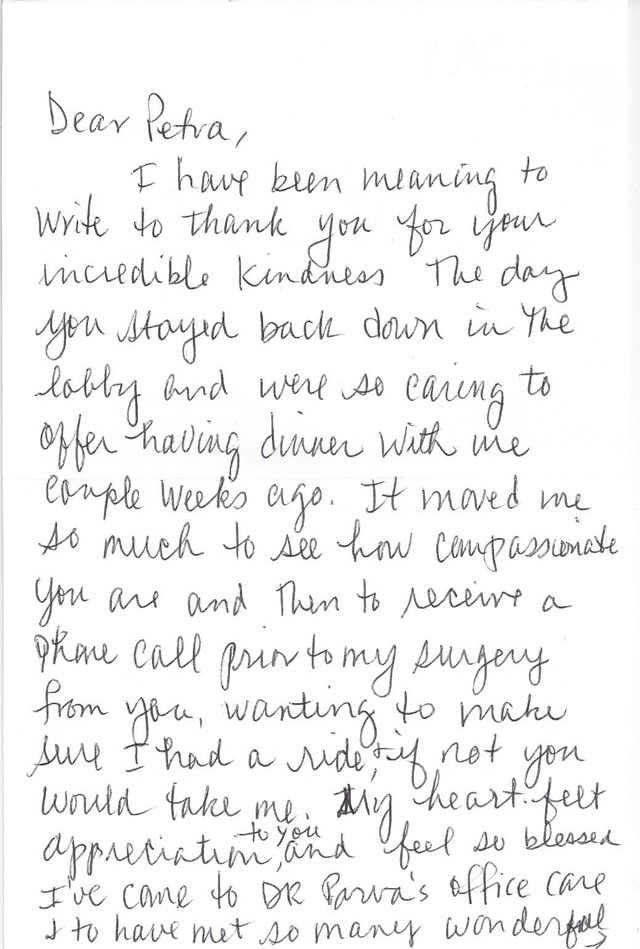 Dear Petra,
I have been meaning to
write to thank you for your
incredible kindness the day
you stayed back down in the
lobby and were so caring to
offer having dinner with me
couple weeks ago. It moved me
so much to see how compassionate
you are and then to receive a
phone call prior to my surgery
from you, wanting to make
sure I had a ride, & if not you
would take me. My heart felt
appreciation, to you and feel so blessed
I've come to DR Parva's office care
& to have met so many wonderful